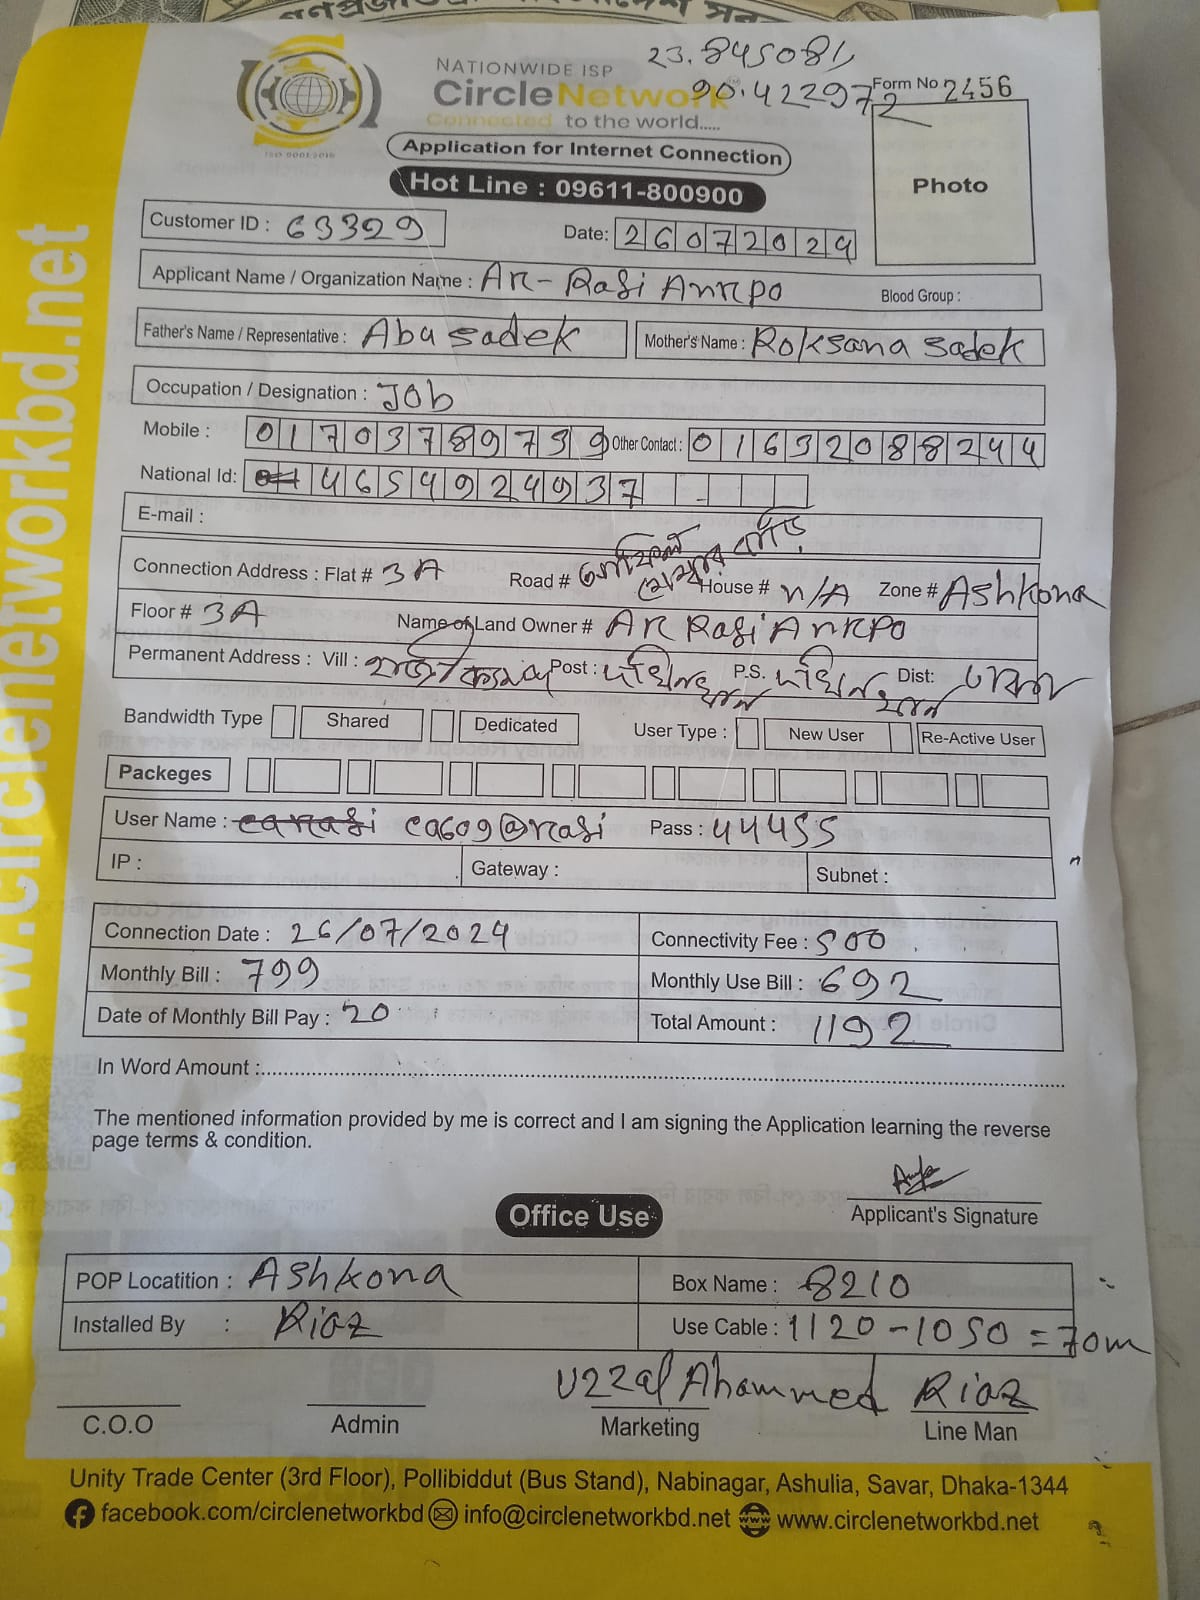 23.845081,
90.422972
NATIONWIDE ISP
CircleNetwork
Connected to the world.....
ISO 9001:2015
Form No 2456
Application for Internet Connection
Hot Line : 09611-800900
Photo
Customer ID : 63329
Date: 26072024
Applicant Name / Organization Name : Ar-Rafi Anrpo
Blood Group :
Father's Name / Representative : Abu sadek
Mother's Name : Roksana sadek
Occupation / Designation : Job
Mobile : 01703789739 Other Contact : 01632088244
National Id: 4654924937
E-mail :
Connection Address : Flat # 3A Road # House # n/A Zone # Ashkona
Floor # 3A Name of Land Owner # AR Rafi Anrpo
Permanent Address : Vill : Post : দক্ষিনখান P.S. দক্ষিনখান Dist: ঢাকা
Bandwidth Type Shared Dedicated User Type : New User Re-Active User
Packeges
User Name : ca609@rafi Pass : 44455
IP : Gateway : Subnet :
Connection Date : 26/07/2024 Connectivity Fee : 500
Monthly Bill : 799 Monthly Use Bill : 692
Date of Monthly Bill Pay : 20 Total Amount : 1192
In Word Amount :
The mentioned information provided by me is correct and I am signing the Application learning the reverse
page terms & condition.
Applicant's Signature
Office Use
POP Locatition : Ashkona Box Name : 8210
Installed By : Riaz Use Cable : 1120-1050 = 70m
Uzzal Ahammed Riaz
C.O.O Admin Marketing Line Man
Unity Trade Center (3rd Floor), Pollibiddut (Bus Stand), Nabinagar, Ashulia, Savar, Dhaka-1344
facebook.com/circlenetworkbd info@circlenetworkbd.net www.circlenetworkbd.net
www.circlenetworkbd.net